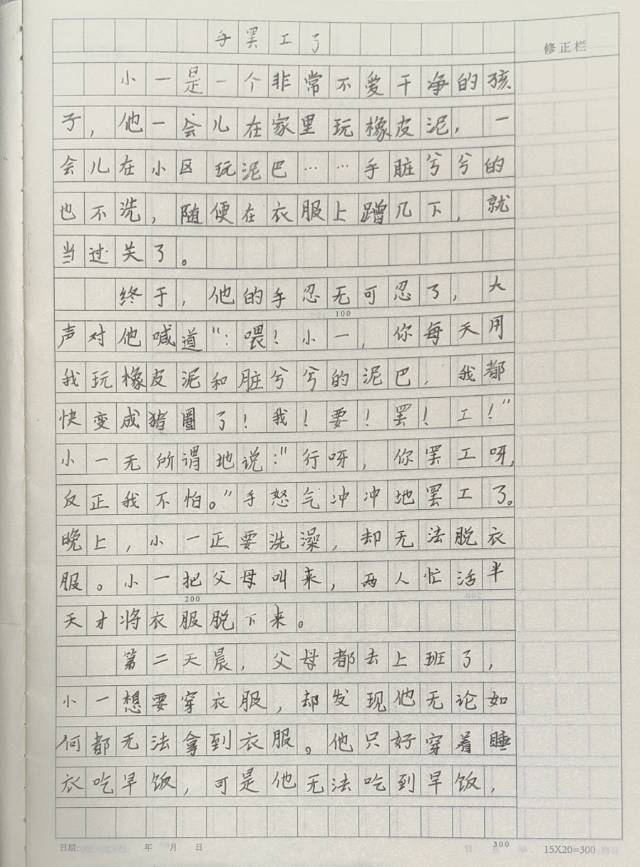 手罢工了
修正栏
小一是一个非常不爱干净的孩
子，他一会儿在家里玩橡皮泥，一
会儿在小区玩泥巴……手脏兮兮的
也不洗，随便在衣服上蹭几下，就
当过关了。
终于，他的手忍无可忍了，大
100
声对他喊道"：喂！小一，你每天用
我玩橡皮泥和脏兮兮的泥巴，我都
快变成猪圈了！我！要！罢！工！"
小一无所谓地说："行呀，你罢工呀，
反正我不怕。"手怒气冲冲地罢工了。
晚上，小一正要洗澡，却无法脱衣
服。小一把父母叫来，两人忙活半
200
天才将衣服脱下来。
第二天晨，父母都去上班了，
小一想要穿衣服，却发现他无论如
何都无法拿到衣服。他只好穿着睡
衣吃早饭，可是他无法吃到早饭，
300
日期： 年 月 日
15X20=300